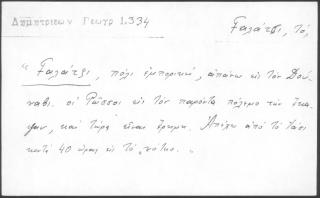 Δημητριέων Γεωγρ 1.334
Γαλάτσι, τό,
"Γαλάτζι, πόλι ἐμπορική, ἀπάνω εἰς τὸν Δού-
ναβι. οἱ Ρῶσσοι εἰς τὸν παρόντα πόλεμο τὴν ἔκα-
ψαν, καὶ τώρα εἶναι ἔρημη. Ἀπέχει ἀπὸ τὸ Ιάσι
κατὰ 40 ὥρας εἰς τὸ νότιο."